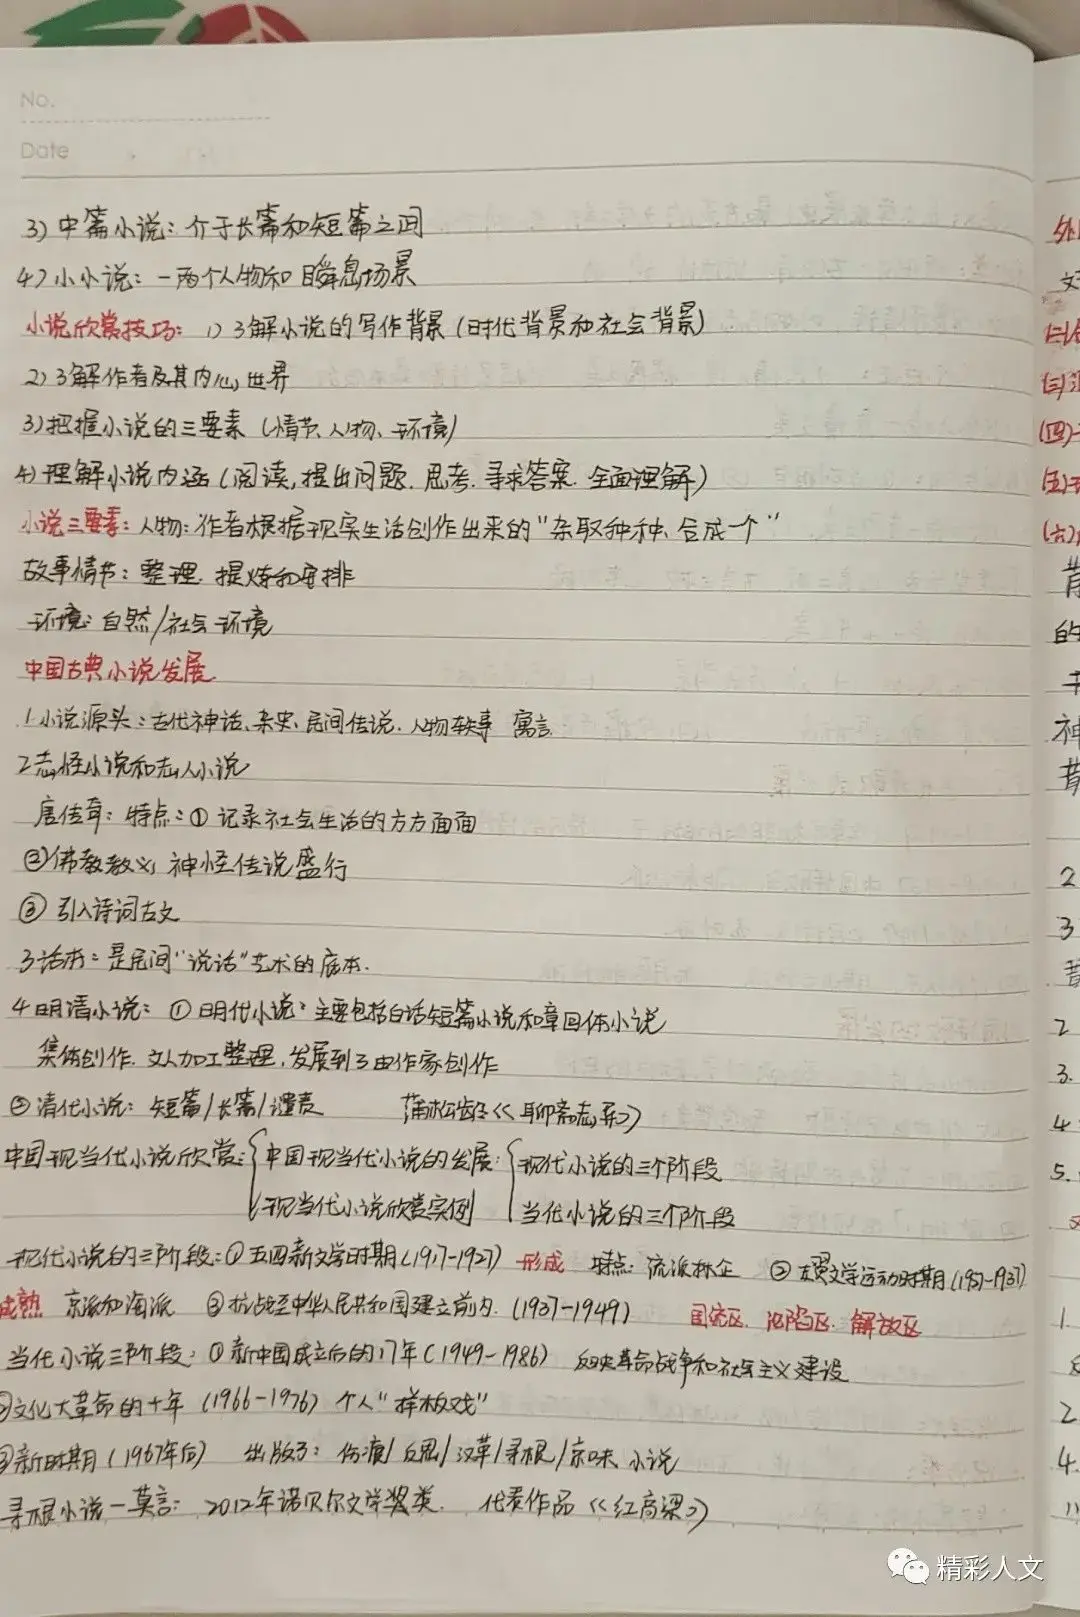 No.
Date
3) 中篇小说：介于长篇和短篇之间
4) 小小说：一两个人物和瞬息场景
小说欣赏技巧：1) 了解小说的写作背景(时代背景和社会背景)
2) 了解作者及其内心世界
3) 把握小说的三要素(情节、人物、环境)
4) 理解小说内涵(阅读,提出问题.思考.寻求答案.全面理解)
小说三要素：人物：作者根据现实生活创作出来的"杂取种种、合成一个"
故事情节：整理.提炼和安排
环境：自然/社会环境
中国古典小说发展
1.小说源头：古代神话、杂史、民间传说.人物轶事 寓言
2志怪小说和志人小说
唐传奇：特点：① 记录社会生活的方方面面
②佛教教义 神怪传说盛行
③ 引入诗词古文
3话本：是民间"说话"艺术的底本.
4明清小说：①明代小说：主要包括白话短篇小说和章回体小说
集体创作.文人加工整理,发展到了由作家创作
②清代小说：短篇/长篇/谴责 蒲松龄《聊斋志异》
中国现当代小说欣赏：{中国现当代小说的发展：{现代小说的三个阶段
现当代小说欣赏实例 当代小说的三个阶段
现代小说的三阶段：①五四新文学时期(1917-1927) 形成 特点：流派林立 ②左翼文学运动时期(1927-1937)
成熟 京派和海派 ③抗战至中华人民共和国建立前内.(1937-1949) 国统区.沦陷区.解放区
当代小说三阶段：①新中国成立后的17年(1949-1986) 反映革命战争和社会主义建设
②文化大革命的十年(1966-1976) 个人"样板戏"
③新时期(1967年后) 出版了：伤痕/反思/改革/寻根/京味小说
寻根小说—莫言：2012年诺贝尔文学奖类.代表作品《红高粱》
精彩人文